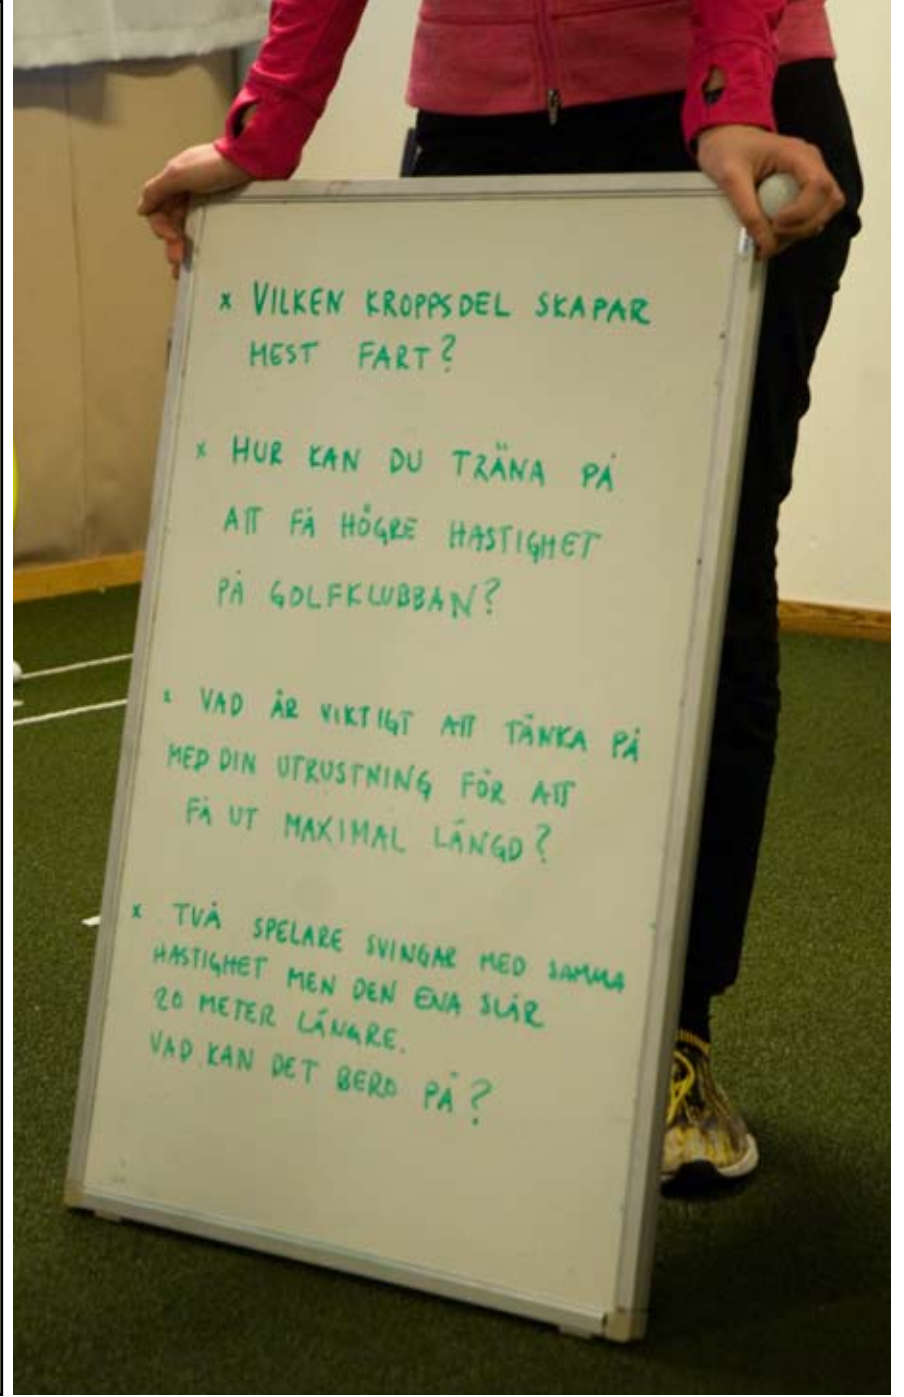 x VILKEN KROPPSDEL SKAPAR
MEST FART?
x HUR KAN DU TRÄNA PÅ
ATT FÅ HÖGRE HASTIGHET
PÅ GOLFKLUBBAN?
x VAD ÄR VIKTIGT ATT TÄNKA PÅ
MED DIN UTRUSTNING FÖR ATT
FÅ UT MAXIMAL LÄNGD?
x TVÅ SPELARE SVINGAR MED SAMMA
HASTIGHET MEN DEN ENA SLÅR
20 METER LÄNGRE.
VAD KAN DET BERO PÅ?